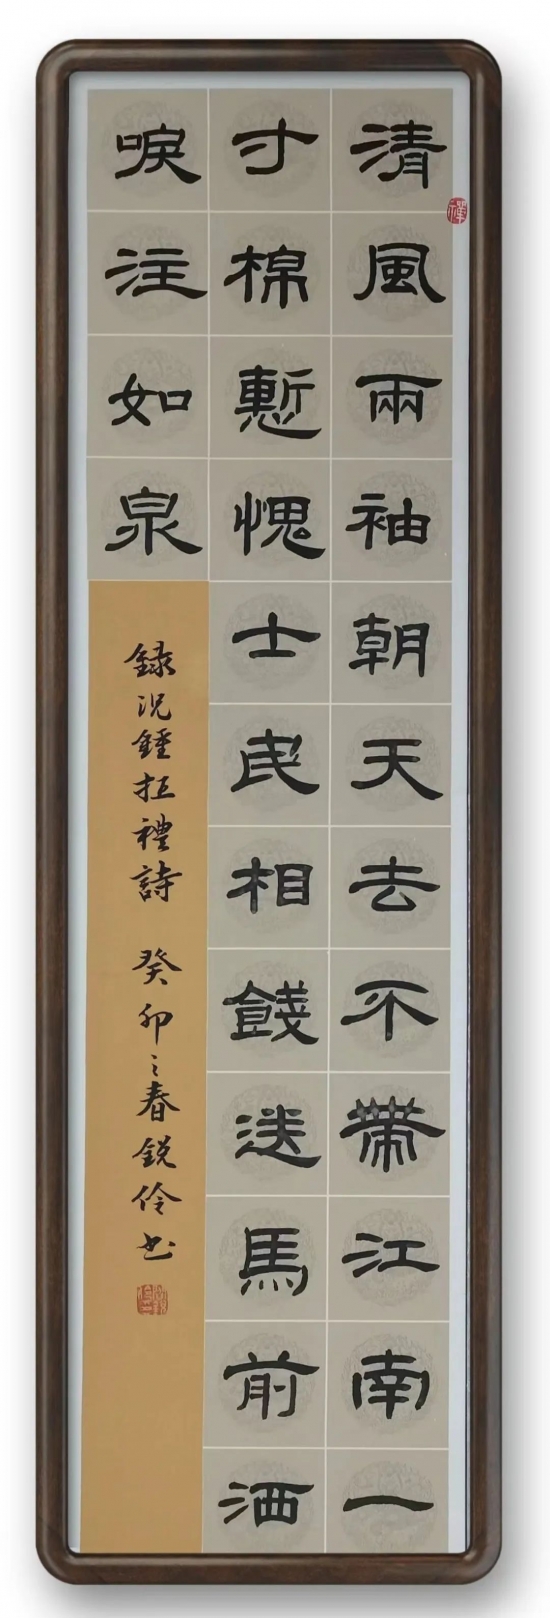 清風兩袖朝天去不帶江南一
寸棉慙愧士民相餞送馬前洒
唳注如泉
録況鍾拒禮詩 癸卯之春鋭伶书